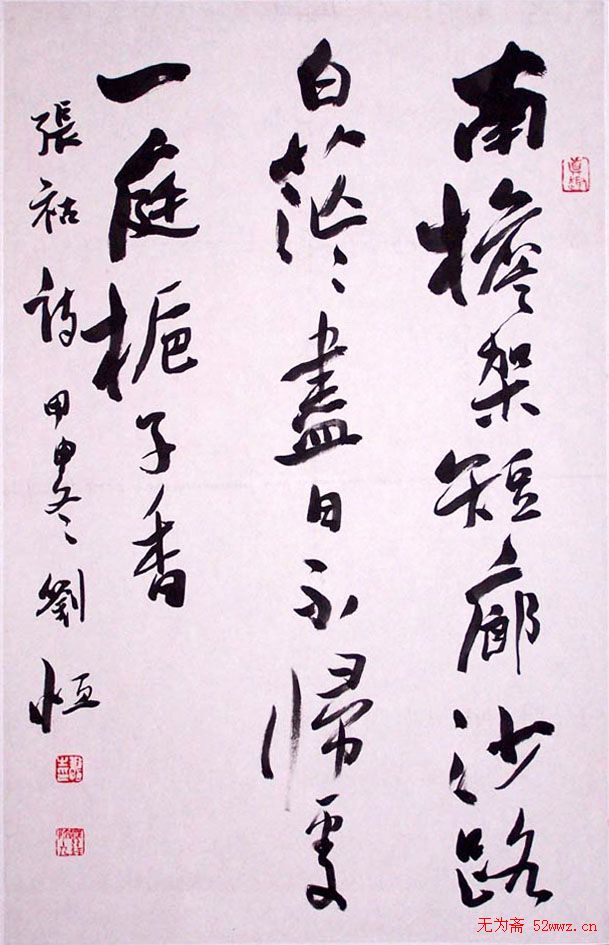 南檐架短廊沙路
白茫〻盡日不歸處
一庭梔子香
張祜詩甲申冬劉恒
无为斋 52wwz.cn